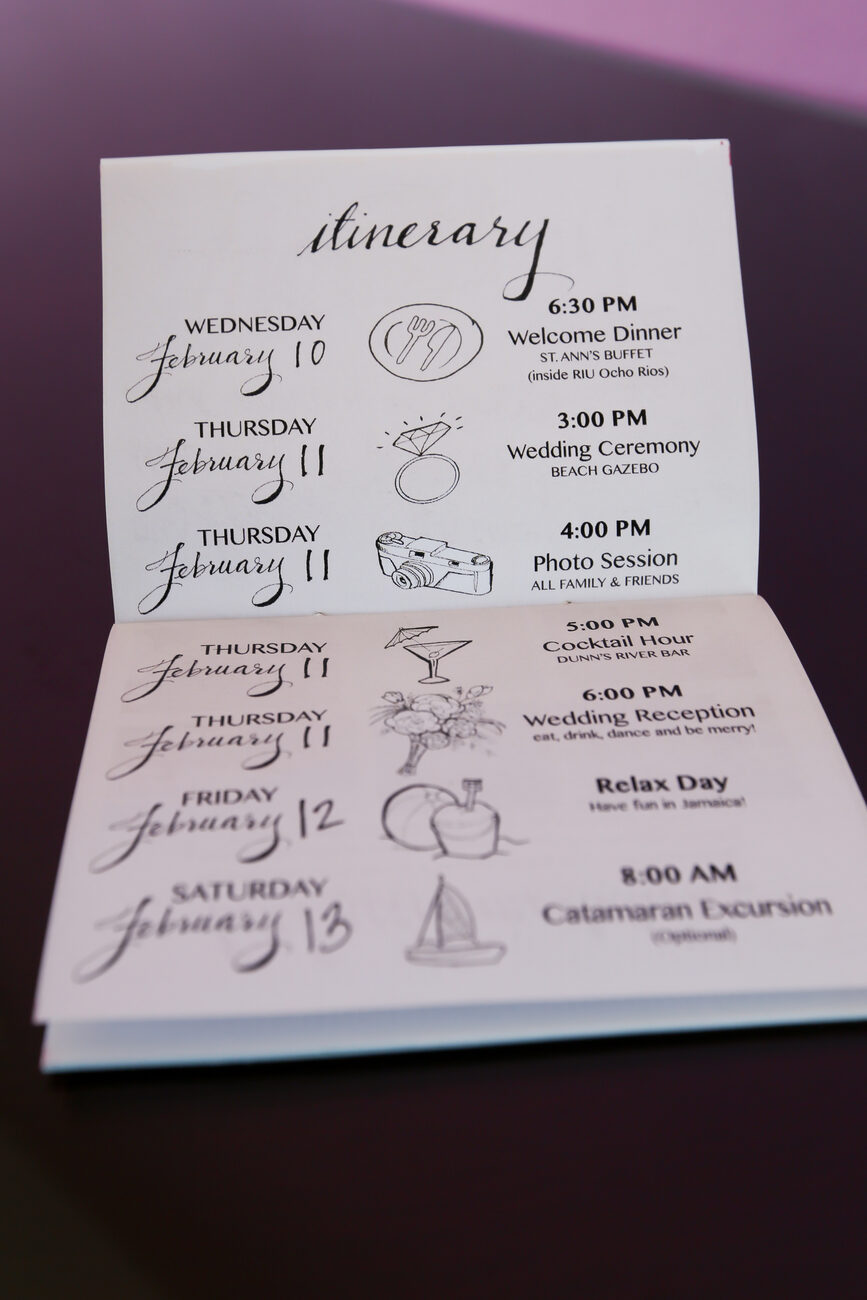 itinerary
WEDNESDAY
February 10
6:30 PM
Welcome Dinner
ST. ANN'S BUFFET
(inside RIU Ocho Rios)
THURSDAY
February 11
3:00 PM
Wedding Ceremony
BEACH GAZEBO
THURSDAY
February 11
4:00 PM
Photo Session
ALL FAMILY & FRIENDS
THURSDAY
February 11
5:00 PM
Cocktail Hour
DUNN'S RIVER BAR
THURSDAY
February 11
6:00 PM
Wedding Reception
eat, drink, dance and be merry!
FRIDAY
February 12
Relax Day
Have fun in Jamaica!
SATURDAY
February 13
8:00 AM
Catamaran Excursion
(Optional)